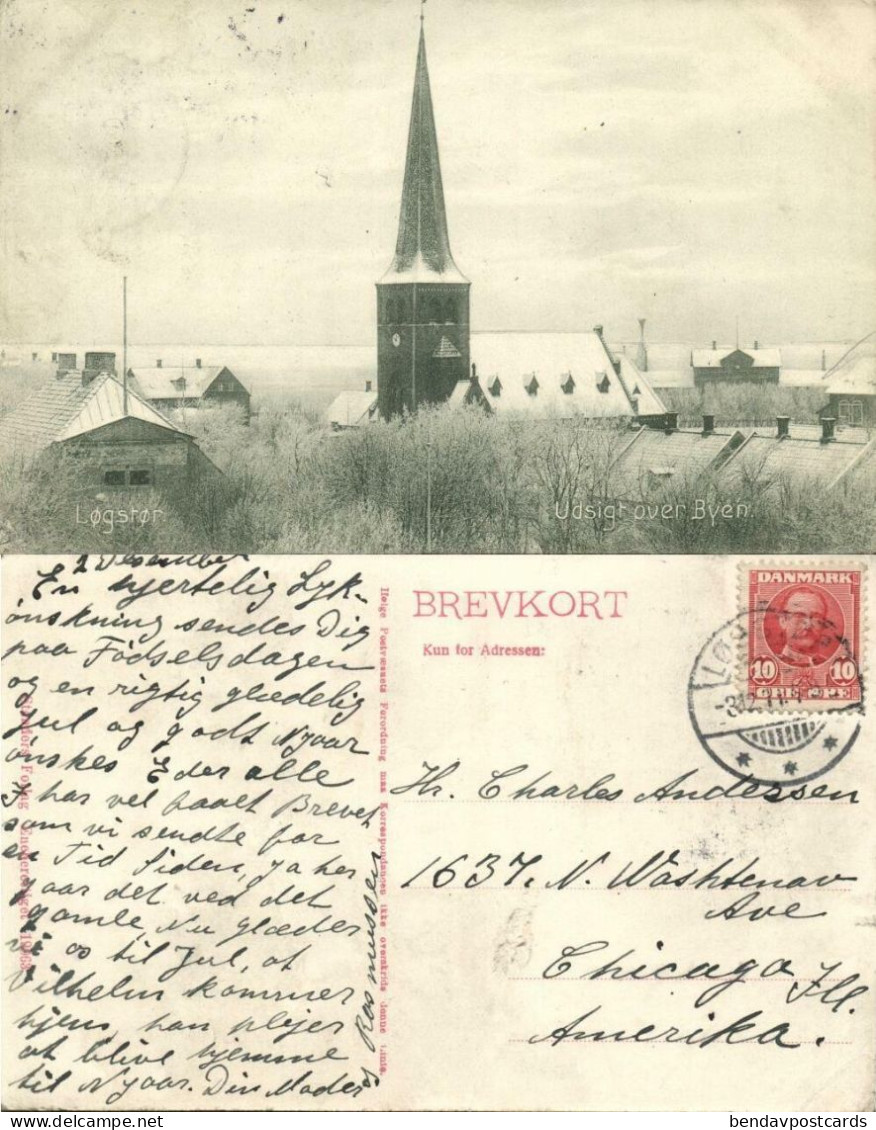 Løgstør
Udsigt over Byen.
2 Desember
En hjertelig Lyk-
önskning sendes Dig
paa Födselsdagen
og en rigtig glædelig
Jul og godt Nyaar
önskes Eder alle
I har vel faaet Brevet
som vi sendte for
en Tid siden, ja her
gaar det ved det
gamle, Nu glæder
vi os til Jul, at
Vilhelm kommer
hjem, han plejer
at blive hjemme
til Nyaar. Din Moder
Rasmussen
Ifølge Postvæsenets Forordning maa Korrespondancen ikke overskride denne Linie.
BREVKORT
Kun for Adressen:
DANMARK
10 10
ØRE ØRE
LØGSTØR
-3.12.11
Hr. Charles Andersen
1637. N. Washtenav
Ave
Chicago Ill.
Amerika.
bendavpostcards